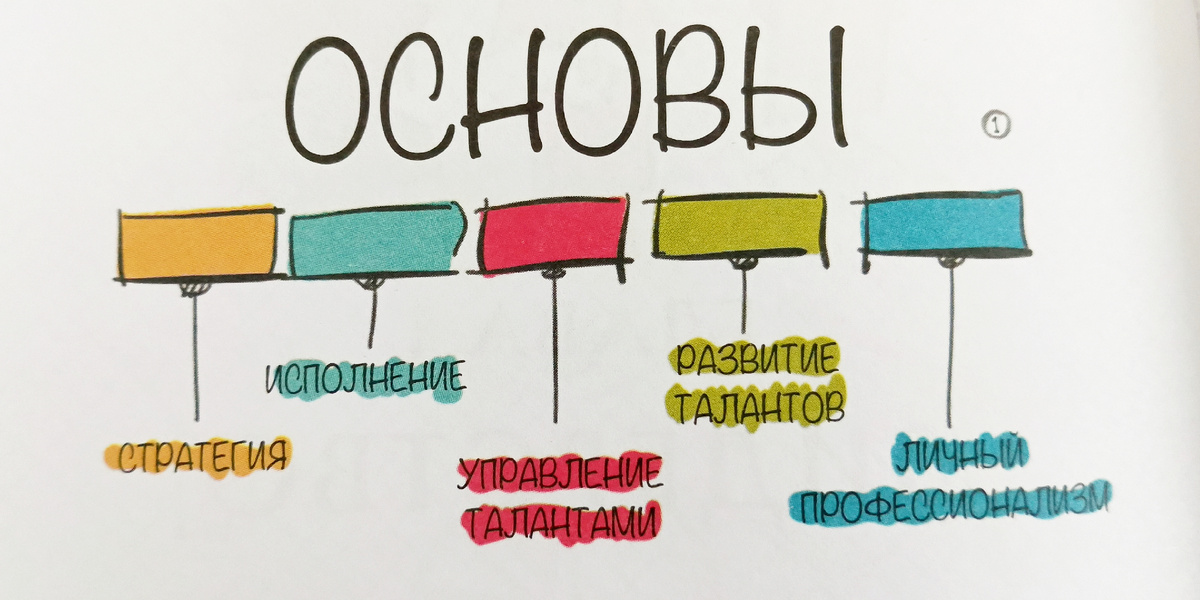 ОСНОВЫ
1
ИСПОЛНЕНИЕ
РАЗВИТИЕ
ТАЛАНТОВ
СТРАТЕГИЯ
УПРАВЛЕНИЕ
ТАЛАНТАМИ
ЛИЧНЫЙ
ПРОФЕССИОНАЛИЗМ